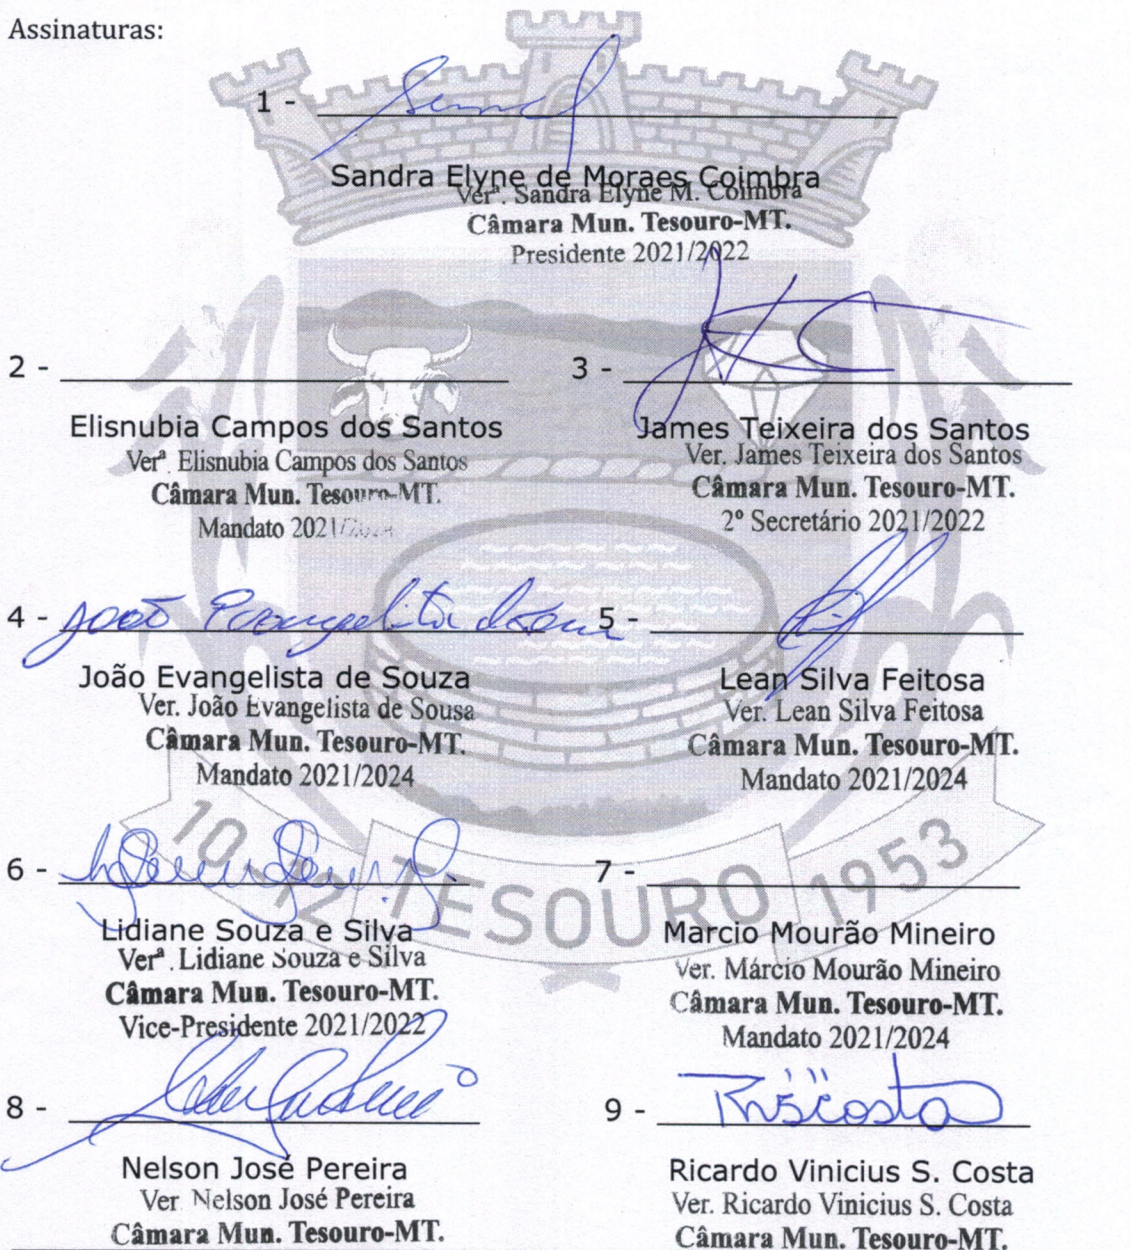 Assinaturas:
1 -
Sandra Elyne de Moraes Coimbra
Verª. Sandra Elyne M. Coimbra
Câmara Mun. Tesouro-MT.
Presidente 2021/2022
2 -
Elisnubia Campos dos Santos
Verª. Elisnubia Campos dos Santos
Câmara Mun. Tesouro-MT.
Mandato 2021/2024
3 -
James Teixeira dos Santos
Ver. James Teixeira dos Santos
Câmara Mun. Tesouro-MT.
2º Secretário 2021/2022
4 - João Evangelista de Souza
João Evangelista de Souza
Ver. João Evangelista de Sousa
Câmara Mun. Tesouro-MT.
Mandato 2021/2024
5 -
Lean Silva Feitosa
Ver. Lean Silva Feitosa
Câmara Mun. Tesouro-MT.
Mandato 2021/2024
6 -
Lidiane Souza e Silva
Verª. Lidiane Souza e Silva
Câmara Mun. Tesouro-MT.
Vice-Presidente 2021/2022
7 -
Marcio Mourão Mineiro
Ver. Márcio Mourão Mineiro
Câmara Mun. Tesouro-MT.
Mandato 2021/2024
10 12 TESOURO 1953
8 -
Nelson José Pereira
Ver Nelson José Pereira
Câmara Mun. Tesouro-MT.
9 -
Ricardo Vinicius S. Costa
Ver. Ricardo Vinicius S. Costa
Câmara Mun. Tesouro-MT.